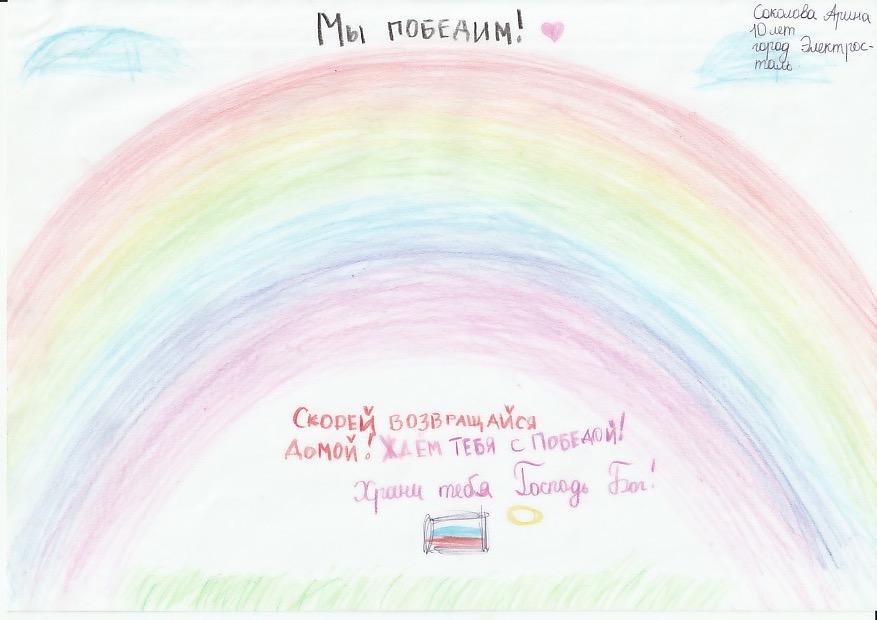 Мы победим!
Соколова Арина
10 лет
город Электрос-
таль.
Скорей возвращайся
домой! Ждём тебя с Победой!
Храни тебя Господь Бог!